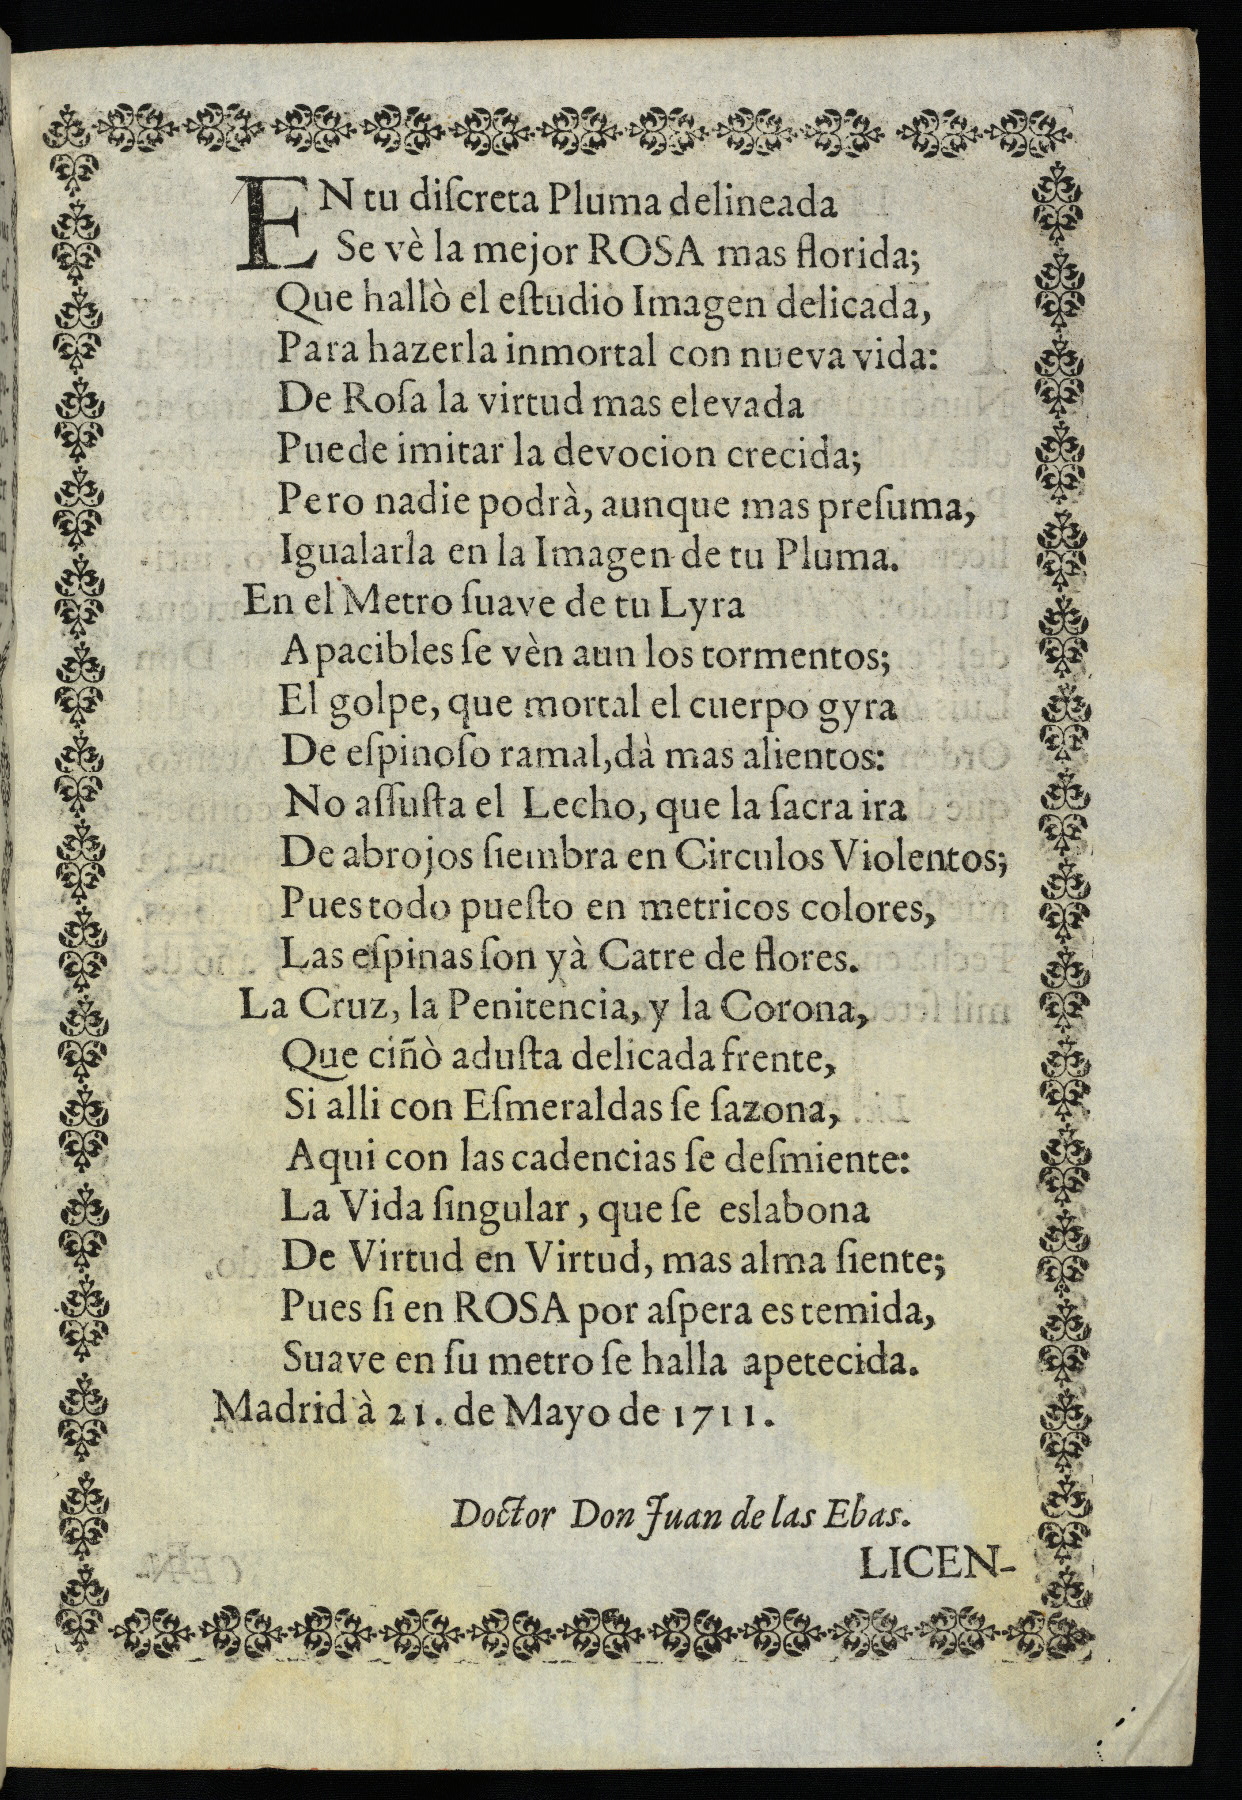 EN tu diſcreta Pluma delineada
Se vè la mejor ROSA mas florida;
Que hallò el eſtudio Imagen delicada,
Para hazerla inmortal con nueva vida:
De Roſa la virtud mas elevada
Puede imitar la devocion crecida;
Pero nadie podrà, aunque mas preſuma,
Igualarla en la Imagen de tu Pluma.
En el Metro ſuave de tu Lyra
Apacibles ſe vèn aun los tormentos;
El golpe, que mortal el cuerpo gyra
De eſpinoſo ramal, dà mas alientos:
No aſſuſta el Lecho, que la ſacra ira
De abrojos ſiembra en Circulos Violentos;
Pues todo pueſto en metricos colores,
Las eſpinas ſon yà Catre de flores.
La Cruz, la Penitencia, y la Corona,
Que ciñò aduſta delicada frente,
Si alli con Eſmeraldas ſe ſazona,
Aqui con las cadencias ſe deſmiente:
La Vida ſingular, que ſe eslabona
De Virtud en Virtud, mas alma ſiente;
Pues ſi en ROSA por aſpera es temida,
Suave en ſu metro ſe halla apetecida.
Madrid à 21. de Mayo de 1711.
Doctor Don Juan de las Ebas.
LICEN-